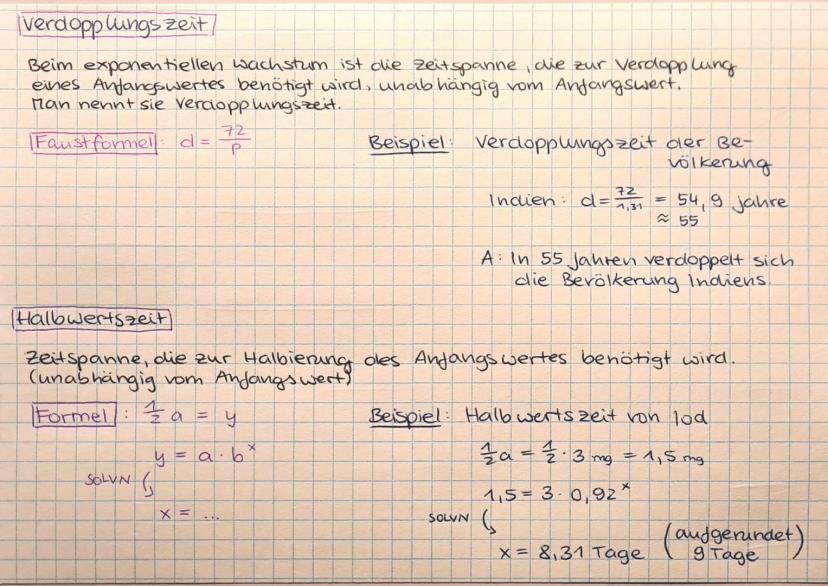 Verdopplungszeit
Beim exponentiellen Wachstum ist die Zeitspanne, die zur Verdopplung
eines Anfangswertes benötigt wird, unabhängig vom Anfangswert.
Man nennt sie Verdopplungszeit.
Faustformel: d = 72/P
Beispiel: Verdopplungszeit der Be-
völkerung
Indien: d = 72/1,31 = 54,9 Jahre
≈ 55
A: In 55 Jahren verdoppelt sich
die Bevölkerung Indiens.
Halbwertszeit
Zeitspanne, die zur Halbierung des Anfangswertes benötigt wird.
(unabhängig vom Anfangswert)
Formel: 1/2 a = y
y = a · b^x
SOLVN
x = ...
Beispiel: Halbwertszeit von Iod
1/2 a = 1/2 · 3 mg = 1,5 mg
1,5 = 3 · 0,92^x
SOLVN
x = 8,31 Tage (aufgerundet
9 Tage)